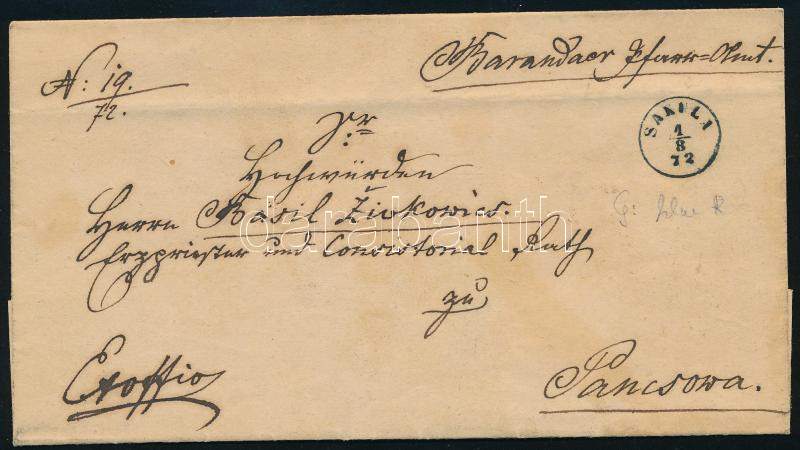 N: 19.
72.
Barandaer Pfarr=Amt.
SAKULA
1
8
72
Sr
Hochwürden
Herrn Basil Živkowics.
Erzpriester und Consistorial Rath
zu
Exoffio
Pancsowa.
darabanth